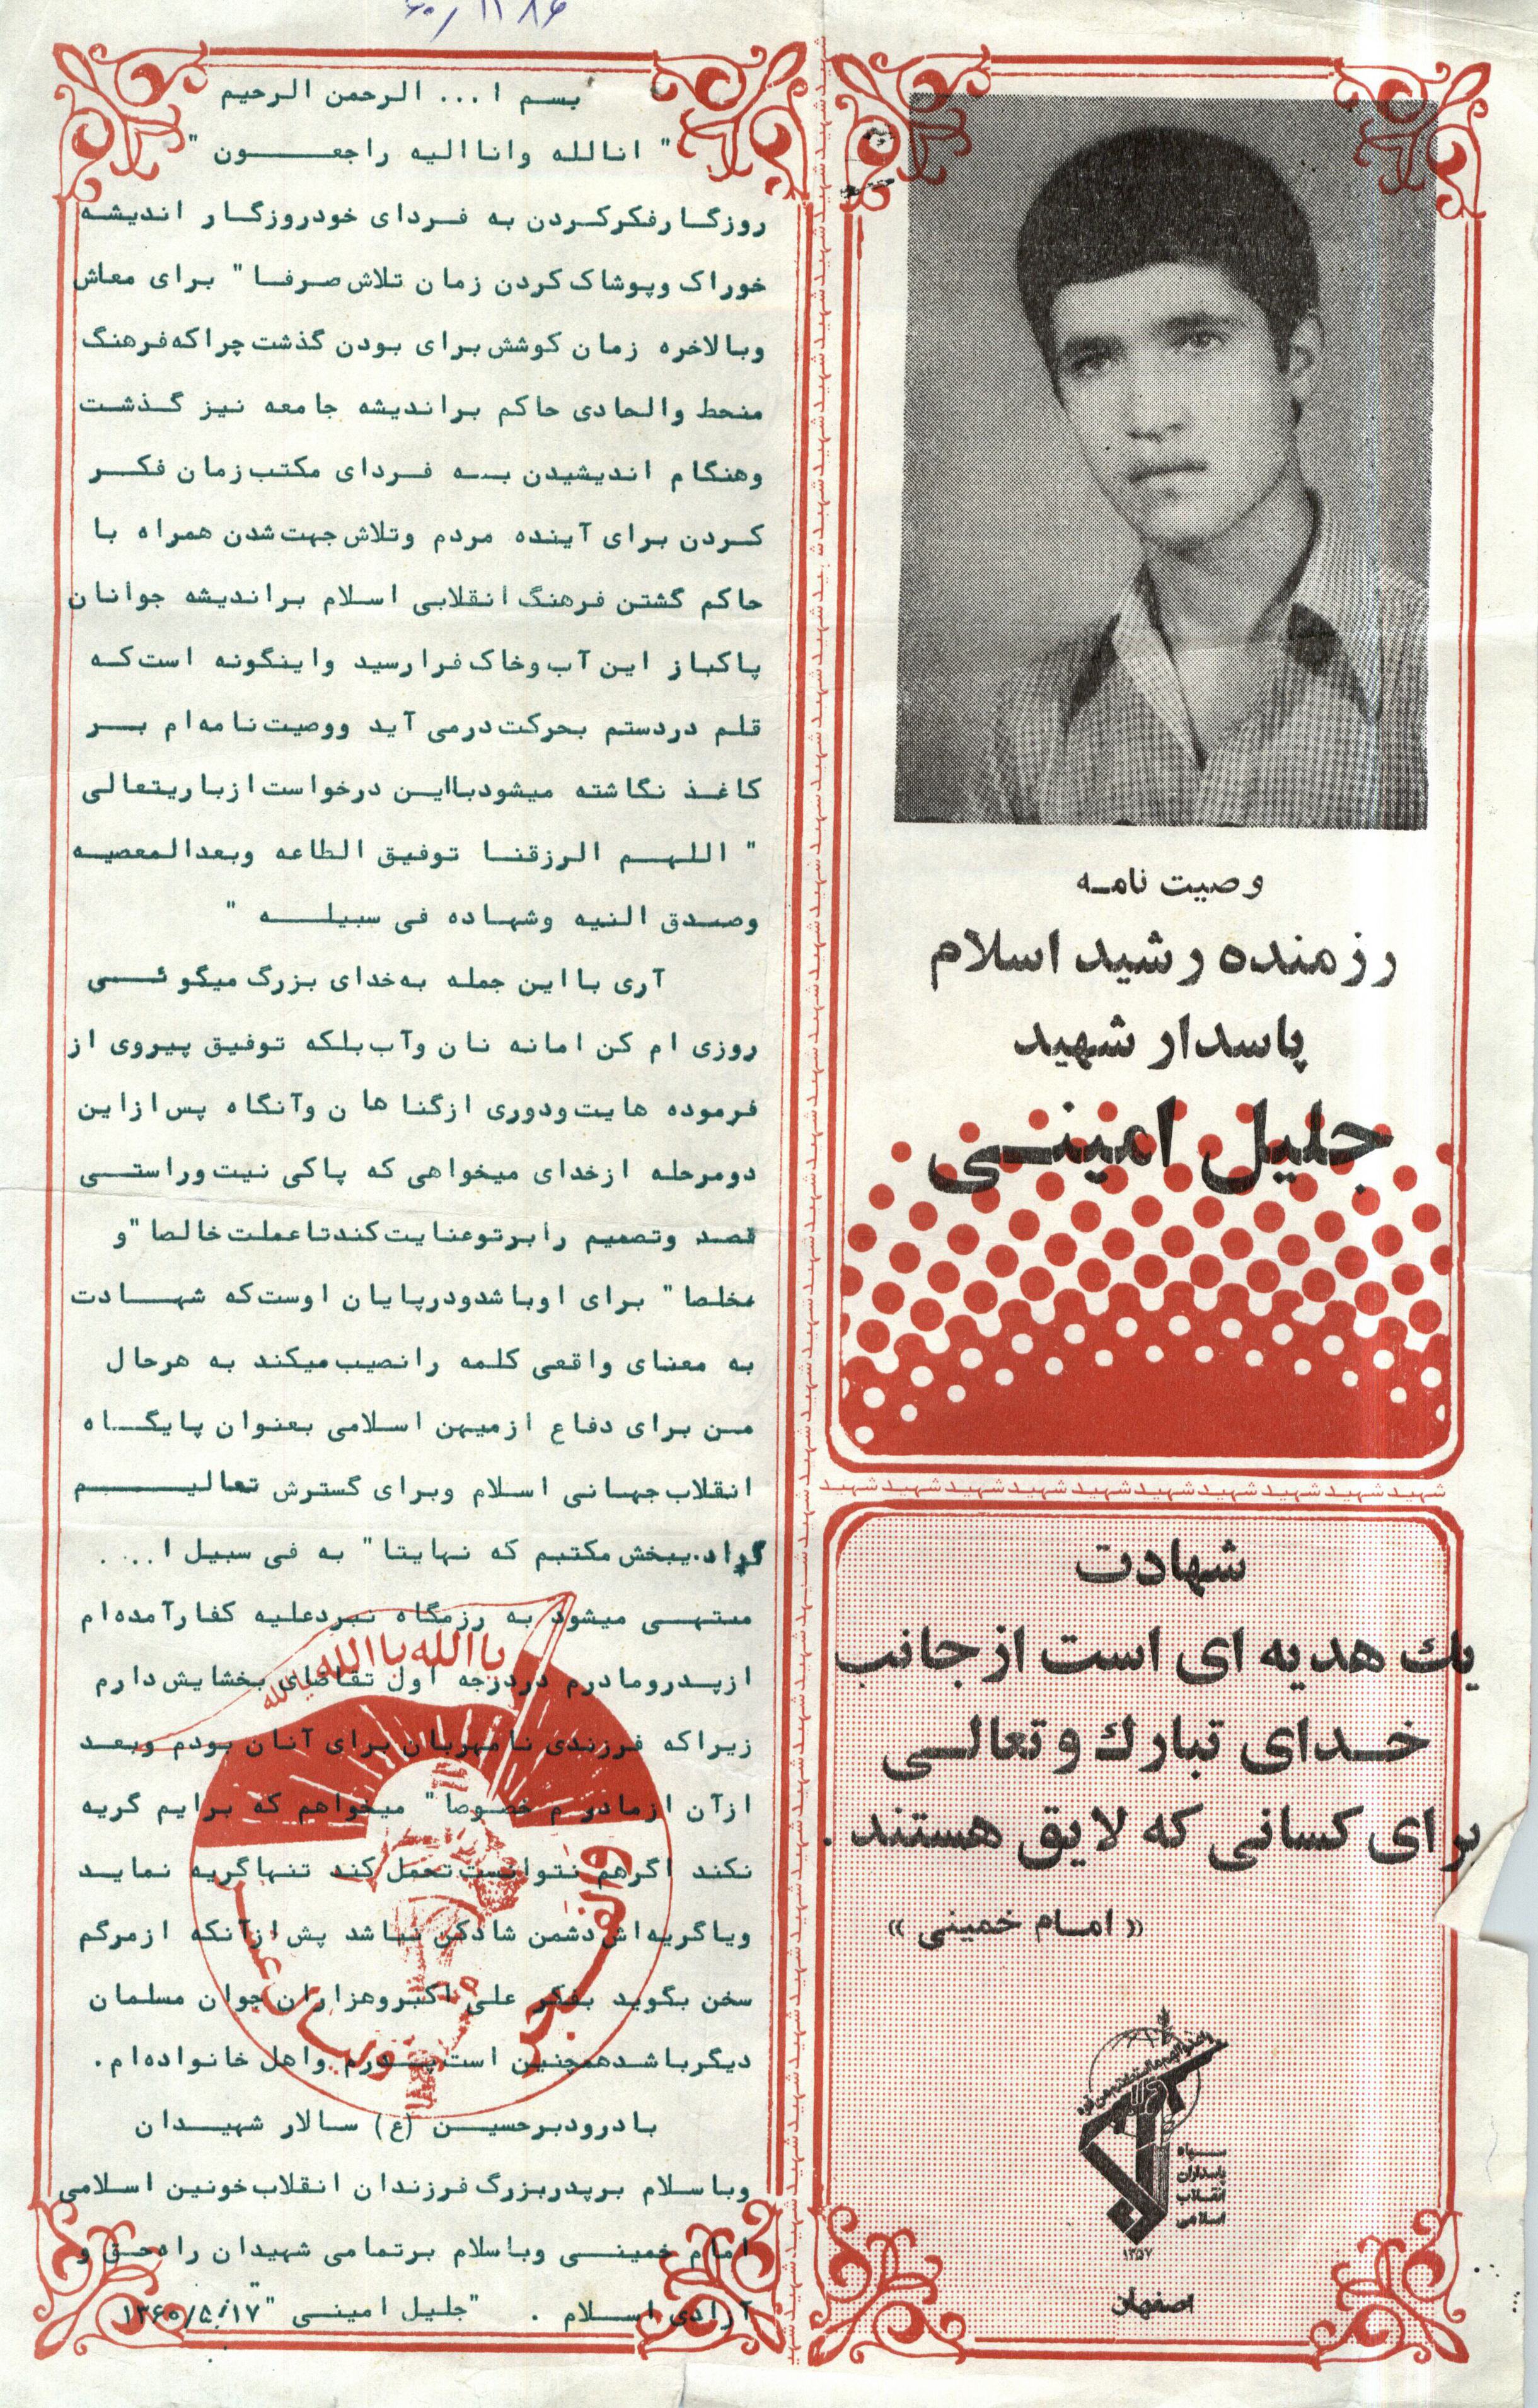 ۶۰/۱۱۸۶
وصیت نامه
رزمنده رشید اسلام
پاسدار شهید
جلیل امینی
شهید شهید شهید شهید شهید شهید شهید شهید شهید شهید
شهادت
یك هدیه ای است از جانب
خدای تبارك و تعالی
برای کسانی که لایق هستند .
« امام خمینی »
سپاه
پاسداران
انقلاب
اسلامی
۱۳۵۷
اصفهان
بسم ا... الرحمن الرحیم
" انالله واناالیه راجعون "
روزگارفکرکردن به فردای خودروزگار اندیشه
خوراک وپوشاک کردن زمان تلاش صرفا" برای معاش
وبالاخره زمان کوشش برای بودن گذشت چراکه فرهنگ
منحط والحادی حاکم براندیشه جامعه نیز گذشت
وهنگام اندیشیدن به فردای مکتب زمان فکر
کردن برای آینده مردم وتلاش جهت شدن همراه با
حاکم گشتن فرهنگ انقلابی اسلام براندیشه جوانان
پاکباز این آب وخاک فرارسید واینگونه است که
قلم دردستم بحرکت درمی آید ووصیت نامه ام بر
کاغذ نگاشته میشودبااین درخواست ازباریتعالی
" اللهم الرزقنا توفیق الطاعه وبعدالمعصیه
وصدق النیه وشهاده فی سبیله "
آری بااین جمله به خدای بزرگ میگوئی
روزی ام کن امانه نان وآب بلکه توفیق پیروی از
فرموده هایت ودوری ازگناها ن وآنگاه پس ازاین
دومرحله ازخدای میخواهی که پاکی نیت وراستی
قصد وتصمیم رابرتوعنایت کندتاعملت خالصا"و
مخلصا" برای اوباشدودرپایان اوست که شهادت
به معنای واقعی کلمه رانصیب میکند به هرحال
من برای دفاع ازمیهن اسلامی بعنوان پایگاه
انقلاب جهانی اسلام وبرای گسترش تعالیم
یبخش مکتبم که نهایتا" به فی سبیل ا...
منتهی میشود به رزمگاه نبردعلیه کفارآمده ام
ازپدرومادرم دردرجه اول تقاضای بخشایش دارم
زیراکه فرزندی نامهربان برای آنان بودم وبعد
ازآن ازمادر م خصوصا" میخواهم که برایم گریه
نکند اگرهم نتوانست تحمل کند تنهاگریه نماید
ویاگریه اش دشمن شادکن نباشد پش ازآنکه ازمرگم
سخن بگوید بفکر علی اکبروهزاران جوان مسلمان
دیگرباشدهمچنین است پدرم واهل خانواده ام .
بادرودبرحسین (ع) سالار شهیدان
وباسلام برپدربزرگ فرزندان انقلاب خونین اسلامی
امام خمینی وباسلام برتمامی شهیدان راه حق و
آزادی اسلام . "جلیل امینی " ۱۳۶۰/۵/۱۷
یاالله یاالله یاالله